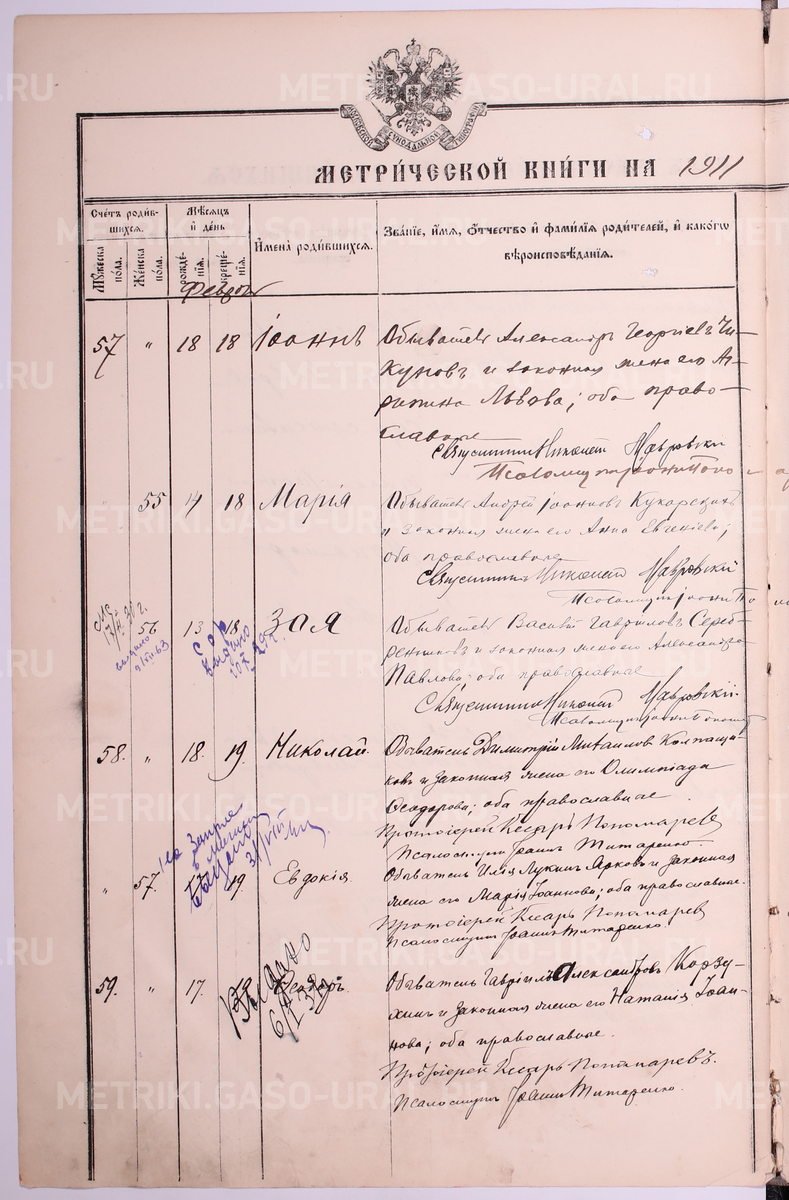 МЕТРИ́ЧЕСКОЙ КНИ́ГИ НА 1911
Сче́тъ роди́в-
шихся.
Мѣ́сяцъ
и де́нь
Имена̀ роди́вшихся.
Зва́нїе, и́мя, ѻ́тчество и фами́лїя роди́телей, и како́гѡ
вѣроисповѣ́данїя.
Му́жеска по́ла.
Же́нска по́ла.
рожде́нїя.
креще́нїя.
Февраль
57 " 18 18 Іоаннъ
Обыватель Александръ Георгіевъ Чи-
куновъ и законная жена его Аг-
рипина Львова; оба право-
славные
Священникъ Николай Мавровскій
55 4 18 Марія
Обыватель Андрей Іоанновъ
и законная жена его Анна Евгеніева;
оба православные
Священникъ Николай Мавровскій
56 13 18 Зоя
Обыватель Василій Гавриловъ Сереб-
ренниковъ и законная жена его Александра
Павлова; оба православные
Священникъ Николай Мавровскій
58. " 18. 19. Николай.
Обыватель Димитрій Михаиловъ Колпащи-
ковъ и законная жена его Олимпіада
Ѳеодорова; оба православные.
Протоіерей Кесарь Пономаревъ
Псаломщикъ Іоаннъ Титаренко.
" 57. 17 19 Евдокія.
Обыватель Илія Лукинъ Ярковъ и законная
жена его Марія Іоаннова; оба православные.
Протоіерей Кесарь Пономаревъ
Псаломщикъ Іоаннъ Титаренко.
59. " 17. 19 Ѳеодоръ.
Выдано
Обыватель Гавріилъ Александровъ Корзу-
хинъ и законная жена его Наталія Іоан-
нова; оба православные.
Протоіерей Кесарь Пономаревъ.
Псаломщикъ Іоаннъ Титаренко.
METRIKI.GASO-URAL.RU